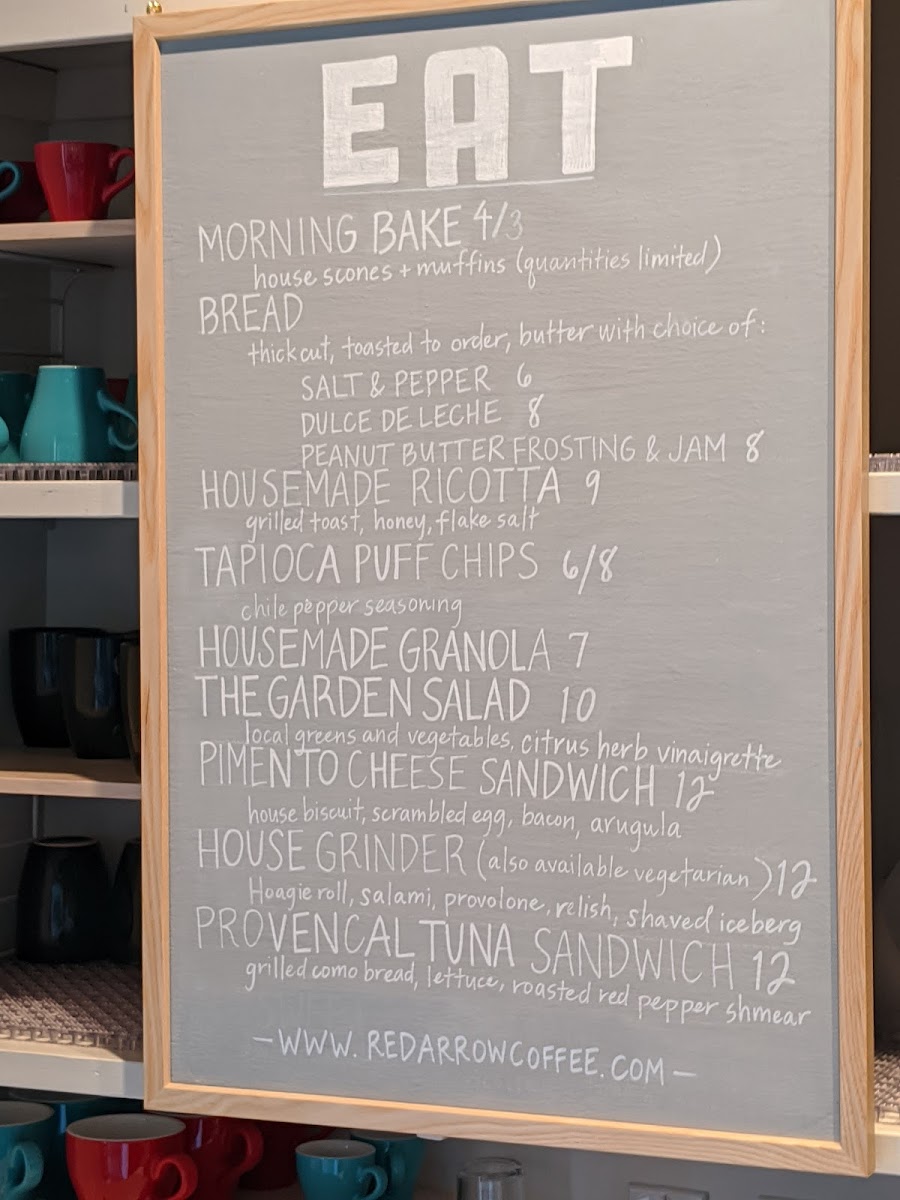 EAT
MORNING BAKE 4/3
house scones + muffins (quantities limited)
BREAD
thick cut, toasted to order, butter with choice of:
SALT & PEPPER 6
DULCE DE LECHE 8
PEANUT BUTTER FROSTING & JAM 8
HOUSEMADE RICOTTA 9
grilled toast, honey, flake salt
TAPIOCA PUFF CHIPS 6/8
chile pepper seasoning
HOUSEMADE GRANOLA 7
THE GARDEN SALAD 10
local greens and vegetables, citrus herb vinaigrette
PIMENTO CHEESE SANDWICH 12
house biscuit, scrambled egg, bacon, arugula
HOUSE GRINDER (also available vegetarian) 12
Hoagie roll, salami, provolone, relish, shaved iceberg
PROVENCAL TUNA SANDWICH 12
grilled como bread, lettuce, roasted red pepper shmear
- WWW.REDARROWCOFFEE.COM -